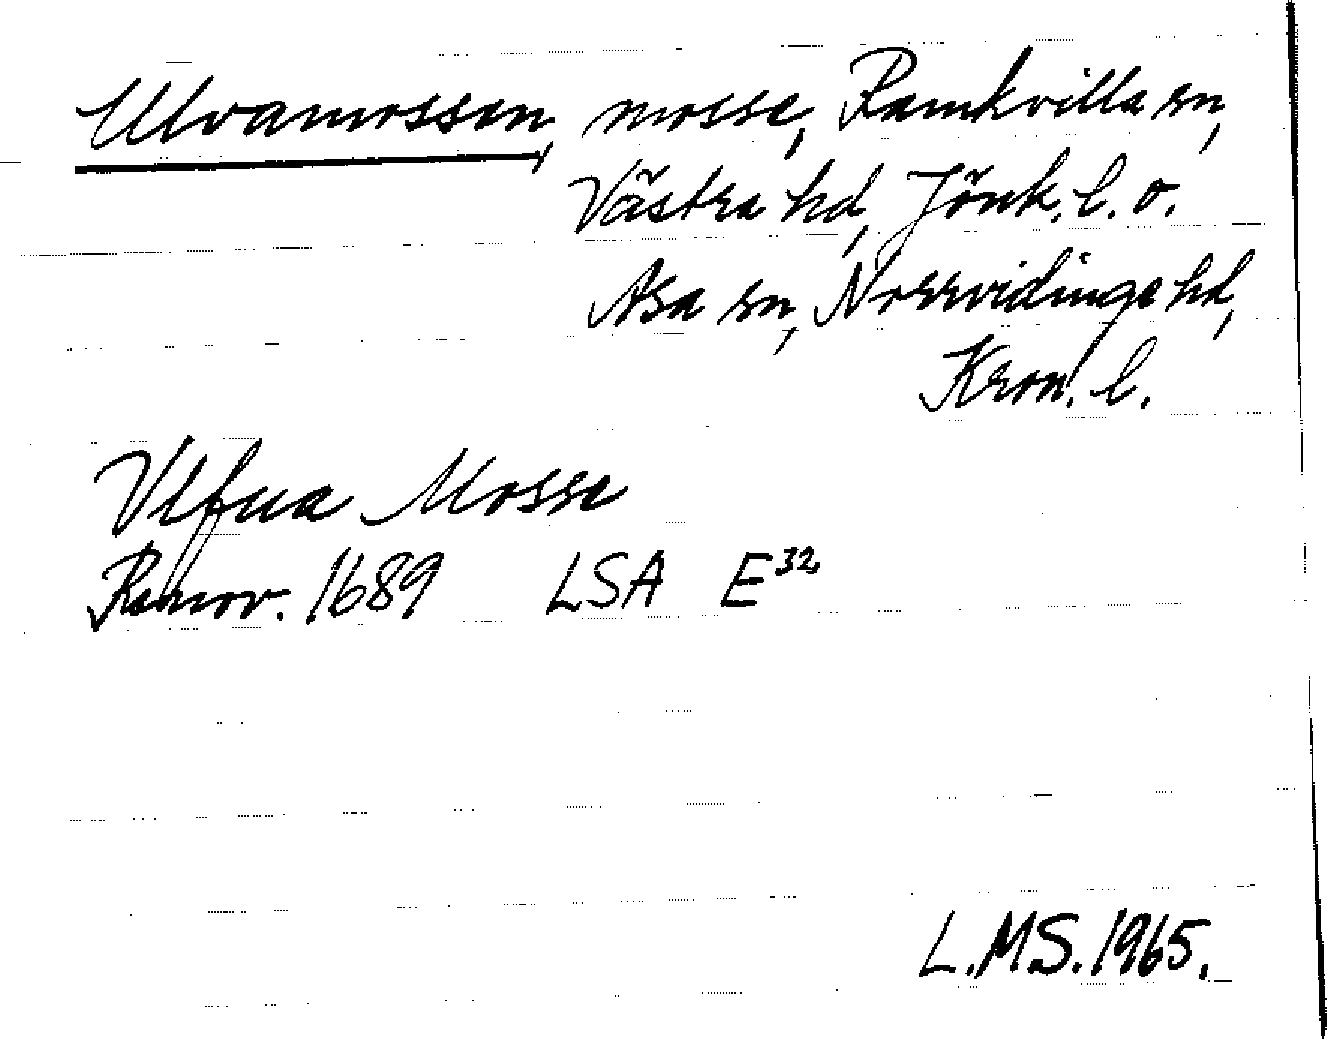 Ulvamossen, mosse, Ramkvilla sn,
Västra hd, Jönk. l. o.
Asa sn, Norrvidinge hd,
Kron. l.
Ulfua Mosse
Renov. 1689 LSA E32
L.MS. 1965.